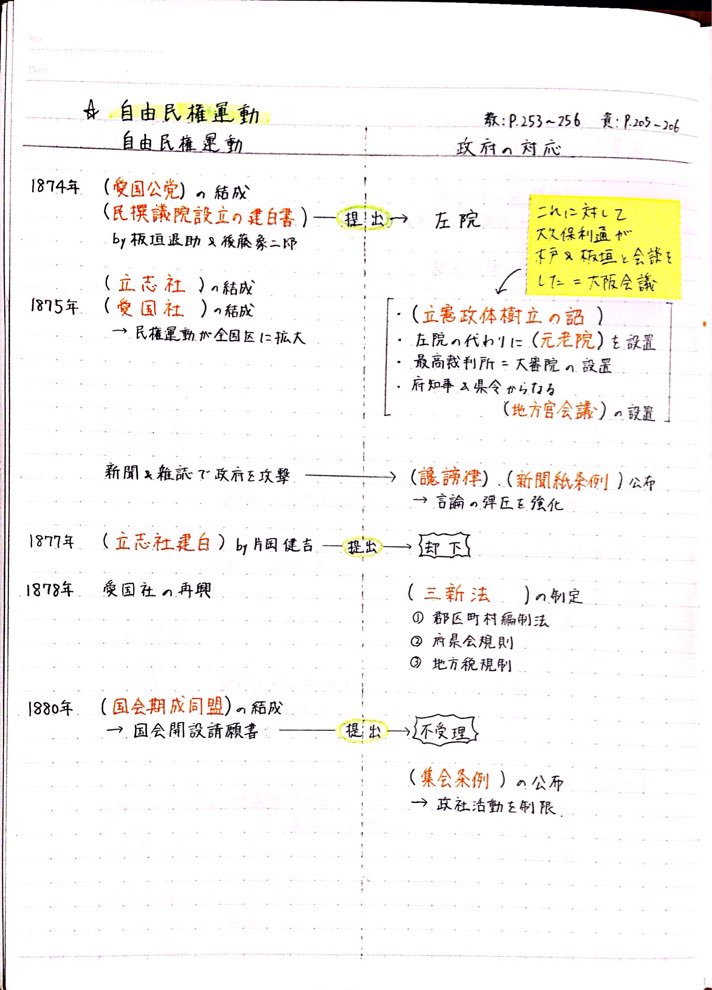 ☆ 自由民権運動
教:P.253~256 資:P.205~206
自由民権運動 政府の対応
1874年 (愛国公党)の結成
(民撰議院設立の建白書) 提出 → 左院
by 板垣退助&後藤象二郎
これに対して
大久保利通が
木戸&板垣と会談を
した=大阪会議
(立志社)の結成
1875年 (愛国社)の結成
→ 民権運動が全国区に拡大
・(立憲政体樹立の詔)
・左院の代わりに(元老院)を設置
・最高裁判所=大審院の設置
・府知事&県令からなる
(地方官会議)の設置
新聞&雑誌で政府を攻撃 → (讒謗律).(新聞紙条例)公布
→ 言論の弾圧を強化
1877年 (立志社建白) by 片岡健吉 提出 → 却下
1878年 愛国社の再興 (三新法)の制定
① 郡区町村編制法
② 府県会規則
③ 地方税規制
1880年 (国会期成同盟)の結成
→ 国会開設請願書 提出 → 不受理
(集会条例)の公布
→ 政社活動を制限